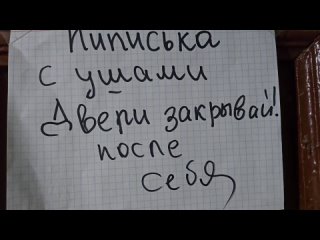 Пиписька
с ушами
Двери закрывай!
после
себя